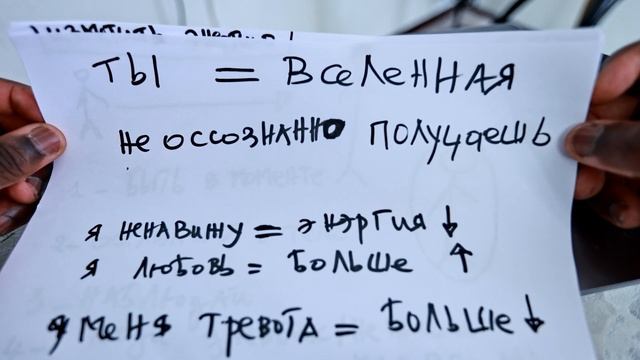 ТЫ = ВСЕЛЕННАЯ
НЕ ОССОЗНАННО ПОЛУЧАЕШЬ
Я НЕНАВИЖУ = ЭНЭРГИЯ ↓
Я ЛЮБОВЬ = БОЛЬШЕ ↑
Я МЕНЯ ТРЕВОГА = БОЛЬШЕ ↓